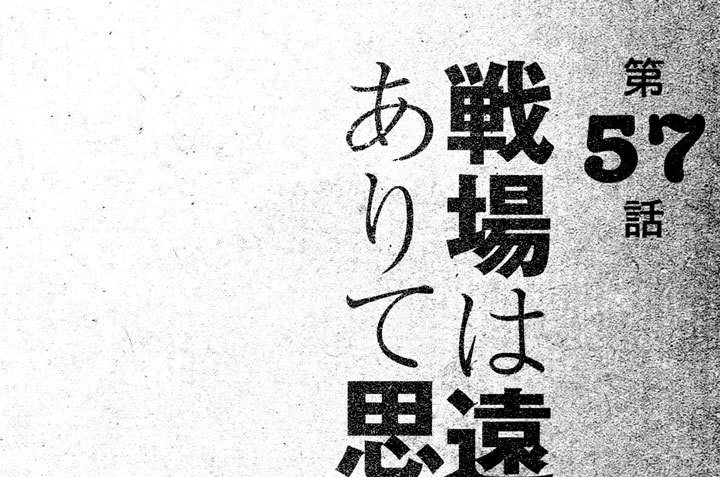 第57話
戦場は遠
ありて思